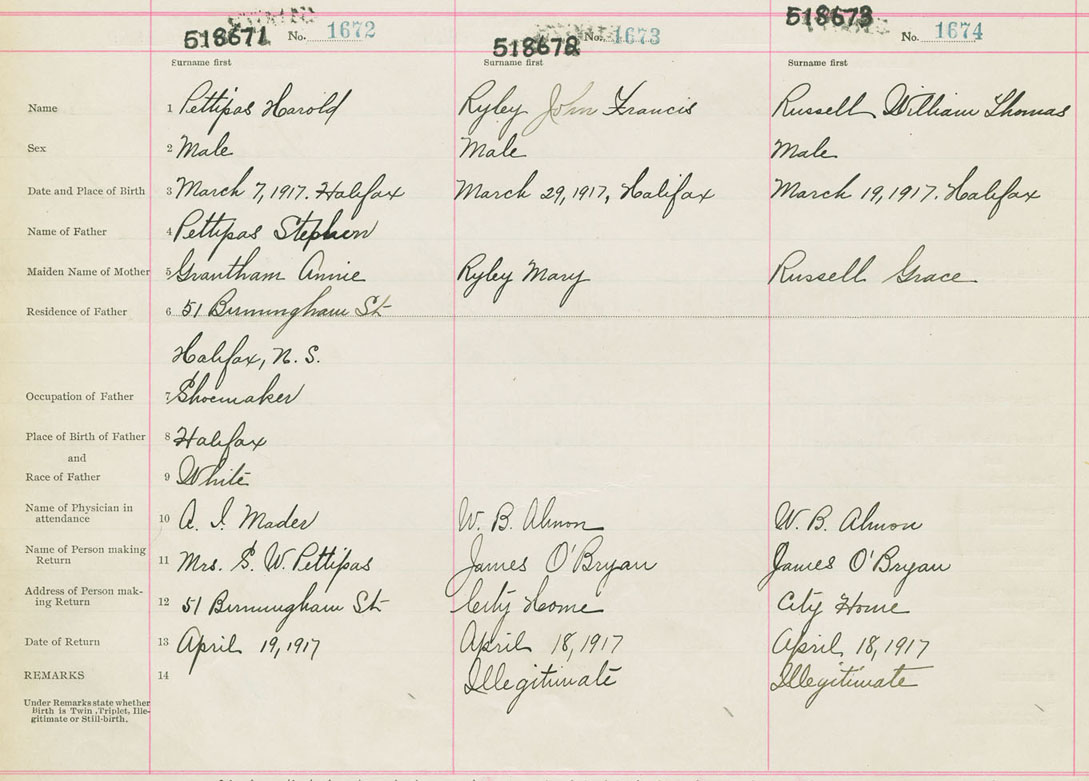 518671 No. 1672 518672 No. 1673 518673 No. 1674
Surname first Surname first Surname first
Name 1 Pettipas Harold Ryley John Francis Russell William Thomas
Sex 2 Male Male Male
Date and Place of Birth 3 March 7, 1917. Halifax March 29, 1917, Halifax March 19, 1917. Halifax
Name of Father 4 Pettipas Stephen
Maiden Name of Mother 5 Grantham Annie Ryley Mary Russell Grace
Residence of Father 6 51 Birmingham St
Halifax, N. S.
Occupation of Father 7 Shoemaker
Place of Birth of Father 8 Halifax
and
Race of Father 9 White
Name of Physician in
attendance 10 A. I. Mader W. B. Almon W. B. Almon
Name of Person making
Return 11 Mrs. S. W. Pettipas James O'Bryan James O'Bryan
Address of Person mak-
ing Return 12 51 Birmingham St City Home City Home
Date of Return 13 April 19, 1917 April 18, 1917 April 18, 1917
REMARKS 14 Illegitimate Illegitimate
Under Remarks state whether
Birth is Twin, Triplet, Ille-
gitimate or Still-birth.